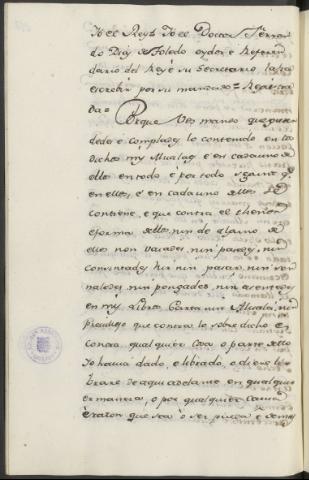 Yo el Rey = Yo el Doctor Ferran
do Diaz de Toledo oydor e Referen
dario del Rey e su Secretario la fice
escrebir por su mandado = Registra
da =
Porque Vos mando que guar
dedes e complades lo contenido en los
dichos my Alvalas e en cada uno de
ellos en todo e por todo segunt qe
en ellos, e en cada uno dellos se
contiene, e que contra el thenor
e forma dellos, nin de alguno de
ellos non vayades, nin pasedes, nin
consintades hir nin pasar, nin
nin pongades, nin asentedes
en my Libro Carta nin Alvala, nin
previlegio que contra lo sobre dicho e
contra qualquier Cosa o parte dello
Yo haya dado, e librado, o diere e li
brare de aqui adelante en qualquier
manera, o por qualquier Causa
e razon que sea o ser pueda